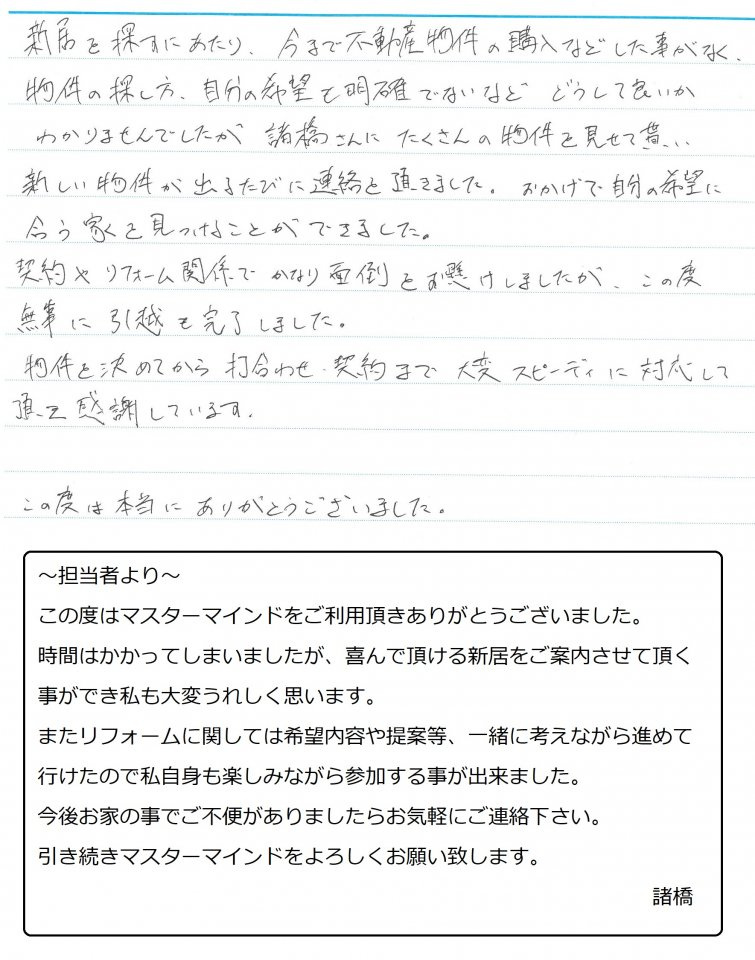 新居を探すにあたり、今まで不動産物件の購入などした事がなく、
物件の探し方、自分の希望も明確でないなど どうして良いか
わかりませんでしたが 諸橋さんに たくさんの物件を見せて貰い、
新しい物件が出るたびに連絡を頂きました。おかげで自分の希望に
合う家を見つけることができました。
契約やリフォーム関係でかなり面倒をお懸けしましたが、この度
無事に引越も完了しました。
物件を決めてから 打合わせ・契約まで 大変スピーディに対応して
頂き感謝しています。
この度は本当にありがとうございました。
～担当者より～
この度はマスターマインドをご利用頂きありがとうございました。
時間はかかってしまいましたが、喜んで頂ける新居をご案内させて頂く
事ができ私も大変うれしく思います。
またリフォームに関しては希望内容や提案等、一緒に考えながら進めて
行けたので私自身も楽しみながら参加する事が出来ました。
今後お家の事でご不便がありましたらお気軽にご連絡下さい。
引き続きマスターマインドをよろしくお願い致します。
諸橋